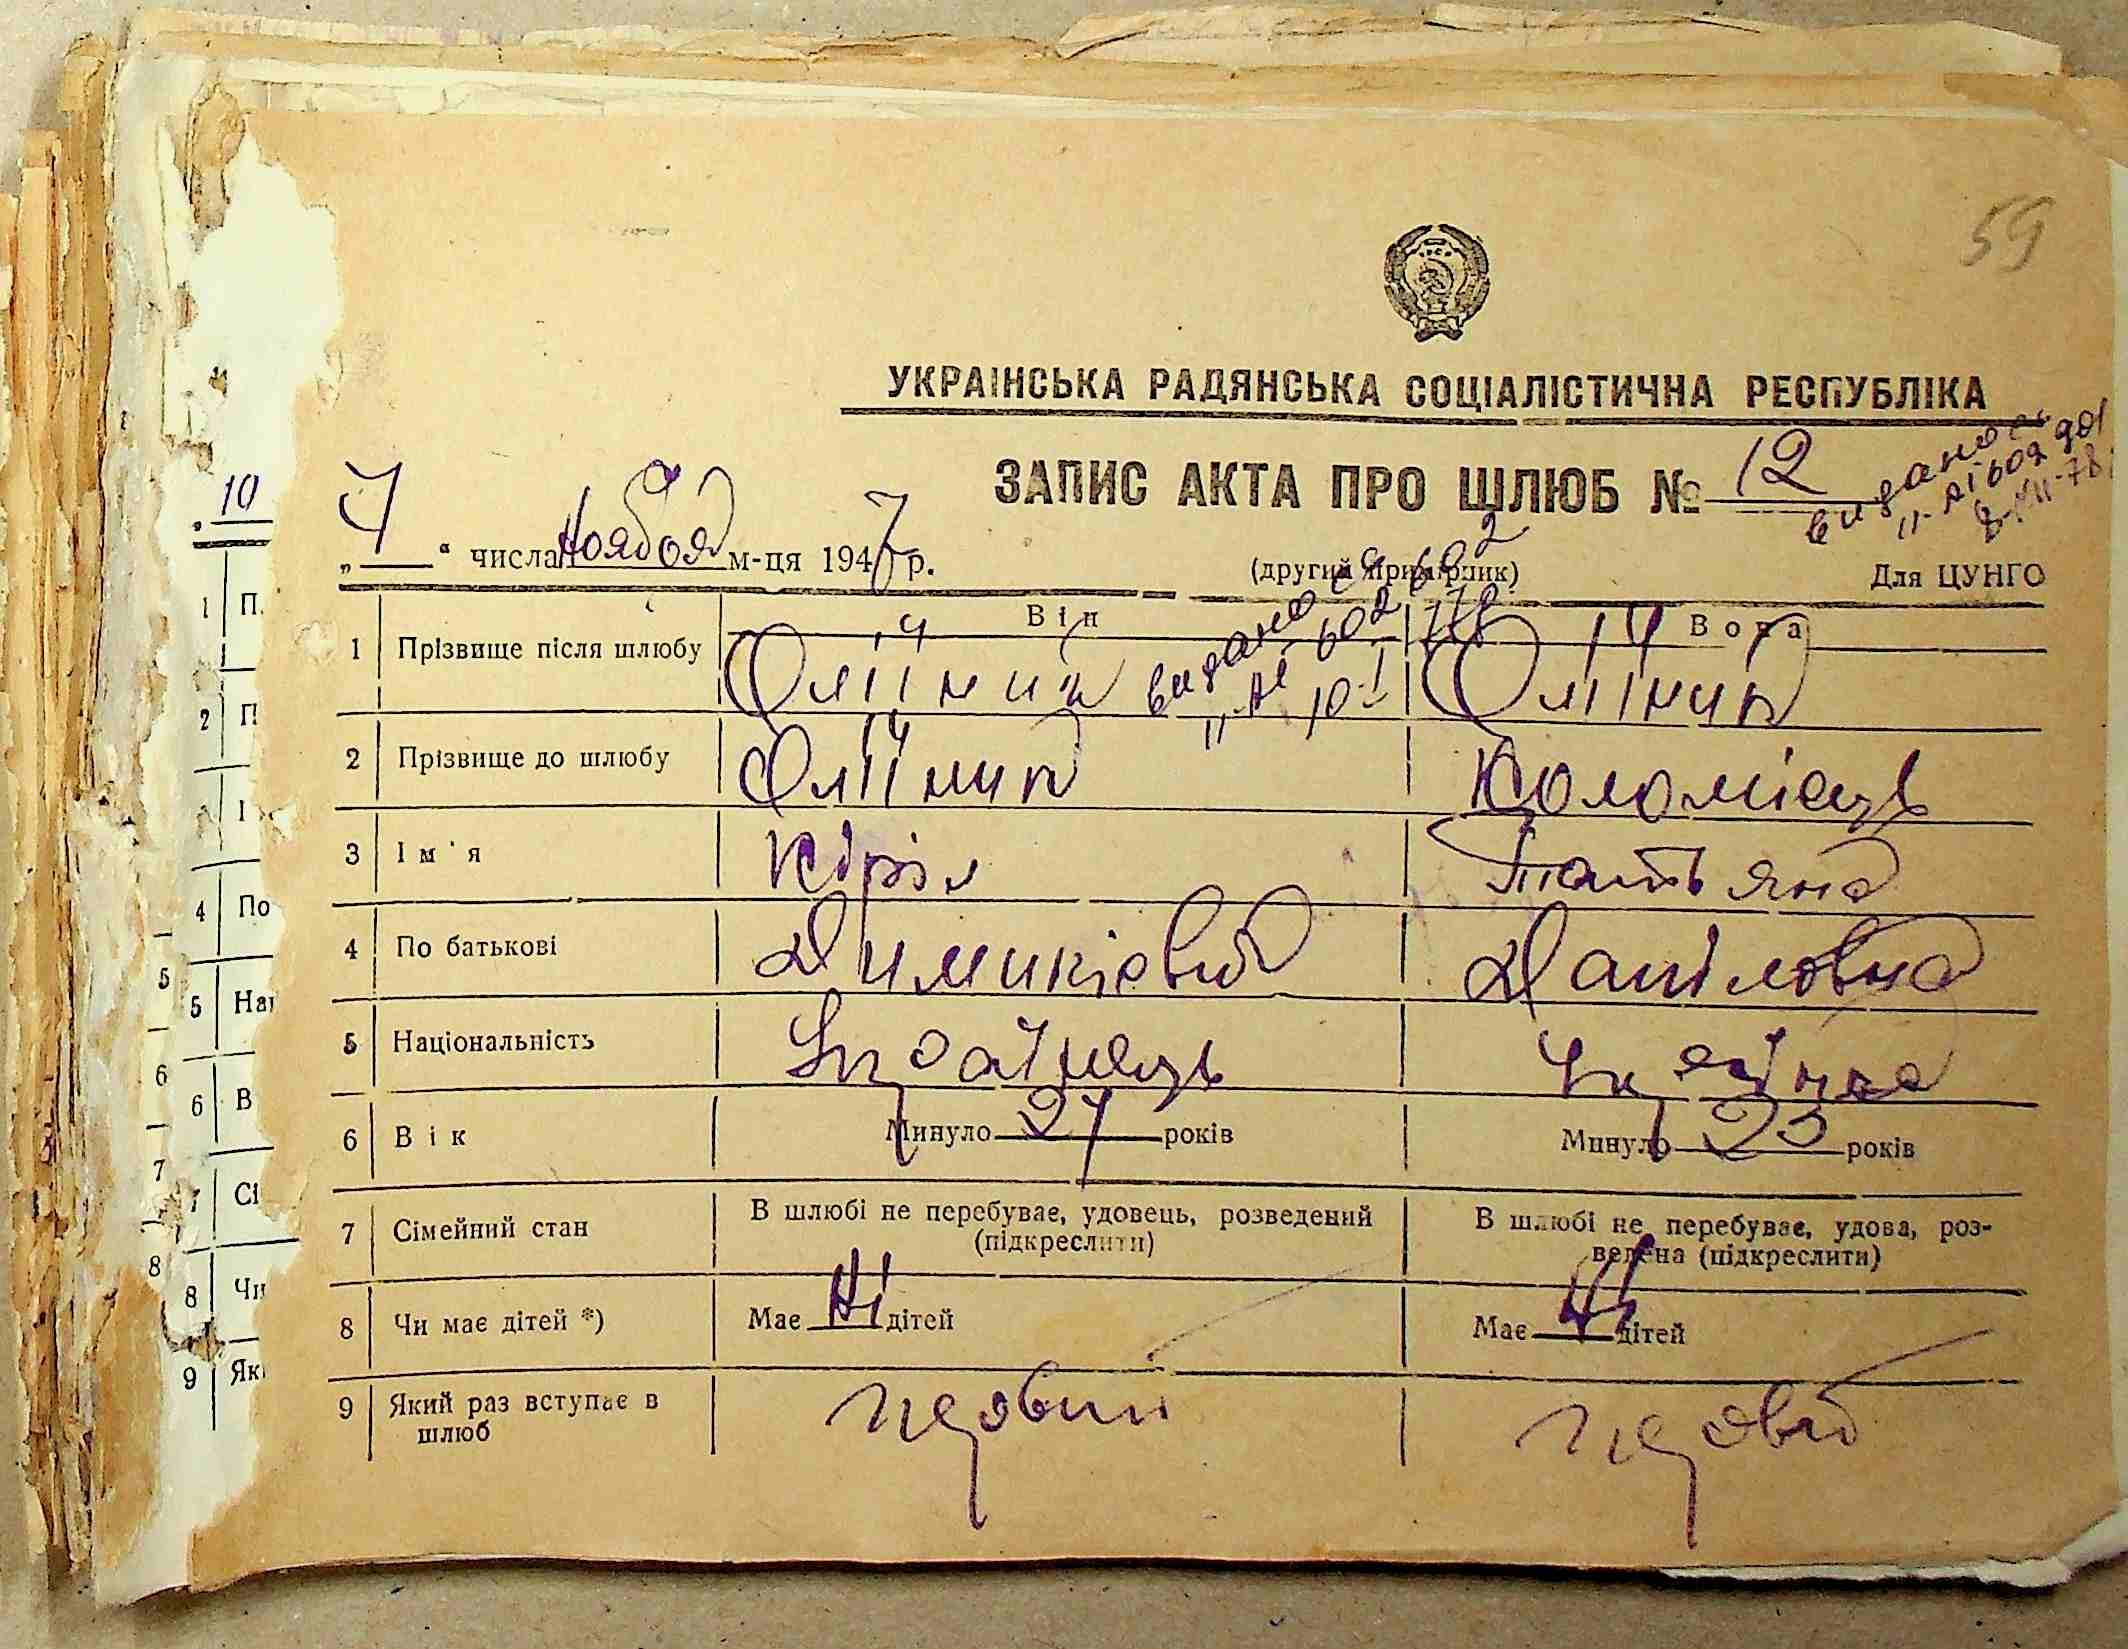 59
УКРАЇНСЬКА РАДЯНСЬКА СОЦІАЛІСТИЧНА РЕСПУБЛІКА
ЗАПИС АКТА ПРО ШЛЮБ № 12
видано
„ “ числа Ноября м-ця 1947 р.
(другий примірник)
Для ЦУНГО
Він
Вона
1 Прізвище після шлюбу Олійник Олійник
видано
2 Прізвище до шлюбу Олійник Коломієць
3 Ім'я Кіріл Татьяна
4 По батькові Даніловна
5 Національність Українець Українка
6 Вік Минуло 27 років Минуло 23 років
7 Сімейний стан В шлюбі не перебуває, удовець, розведений (підкреслити) В шлюбі не перебуває, удова, роз-
ведена (підкреслити)
8 Чи має дітей *) Має Ні дітей Має Ні дітей
9 Який раз вступає в
шлюб
первий перва
10
1 П
2 П
І
4 По
5 5 На
6 6 В
7 Сі
8 8 Чи
9 Як